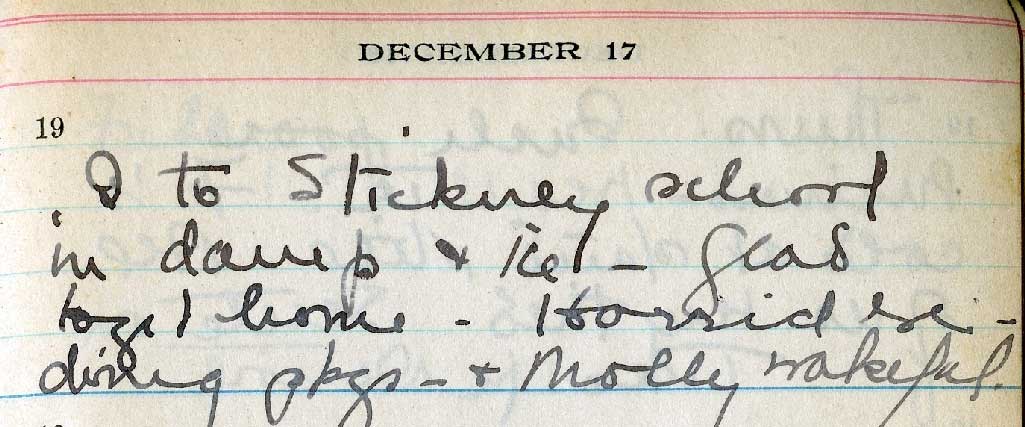 DECEMBER 17
19
I to Stickney school
in damp & - Glad
to get home - Horrid eve. -
doing pkgs - & Molly wakeful.